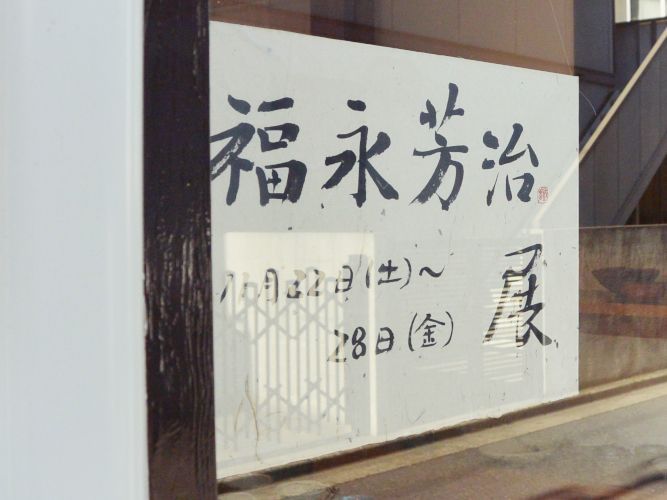 福永芳治
展
10月22日(土)〜
28日(金)